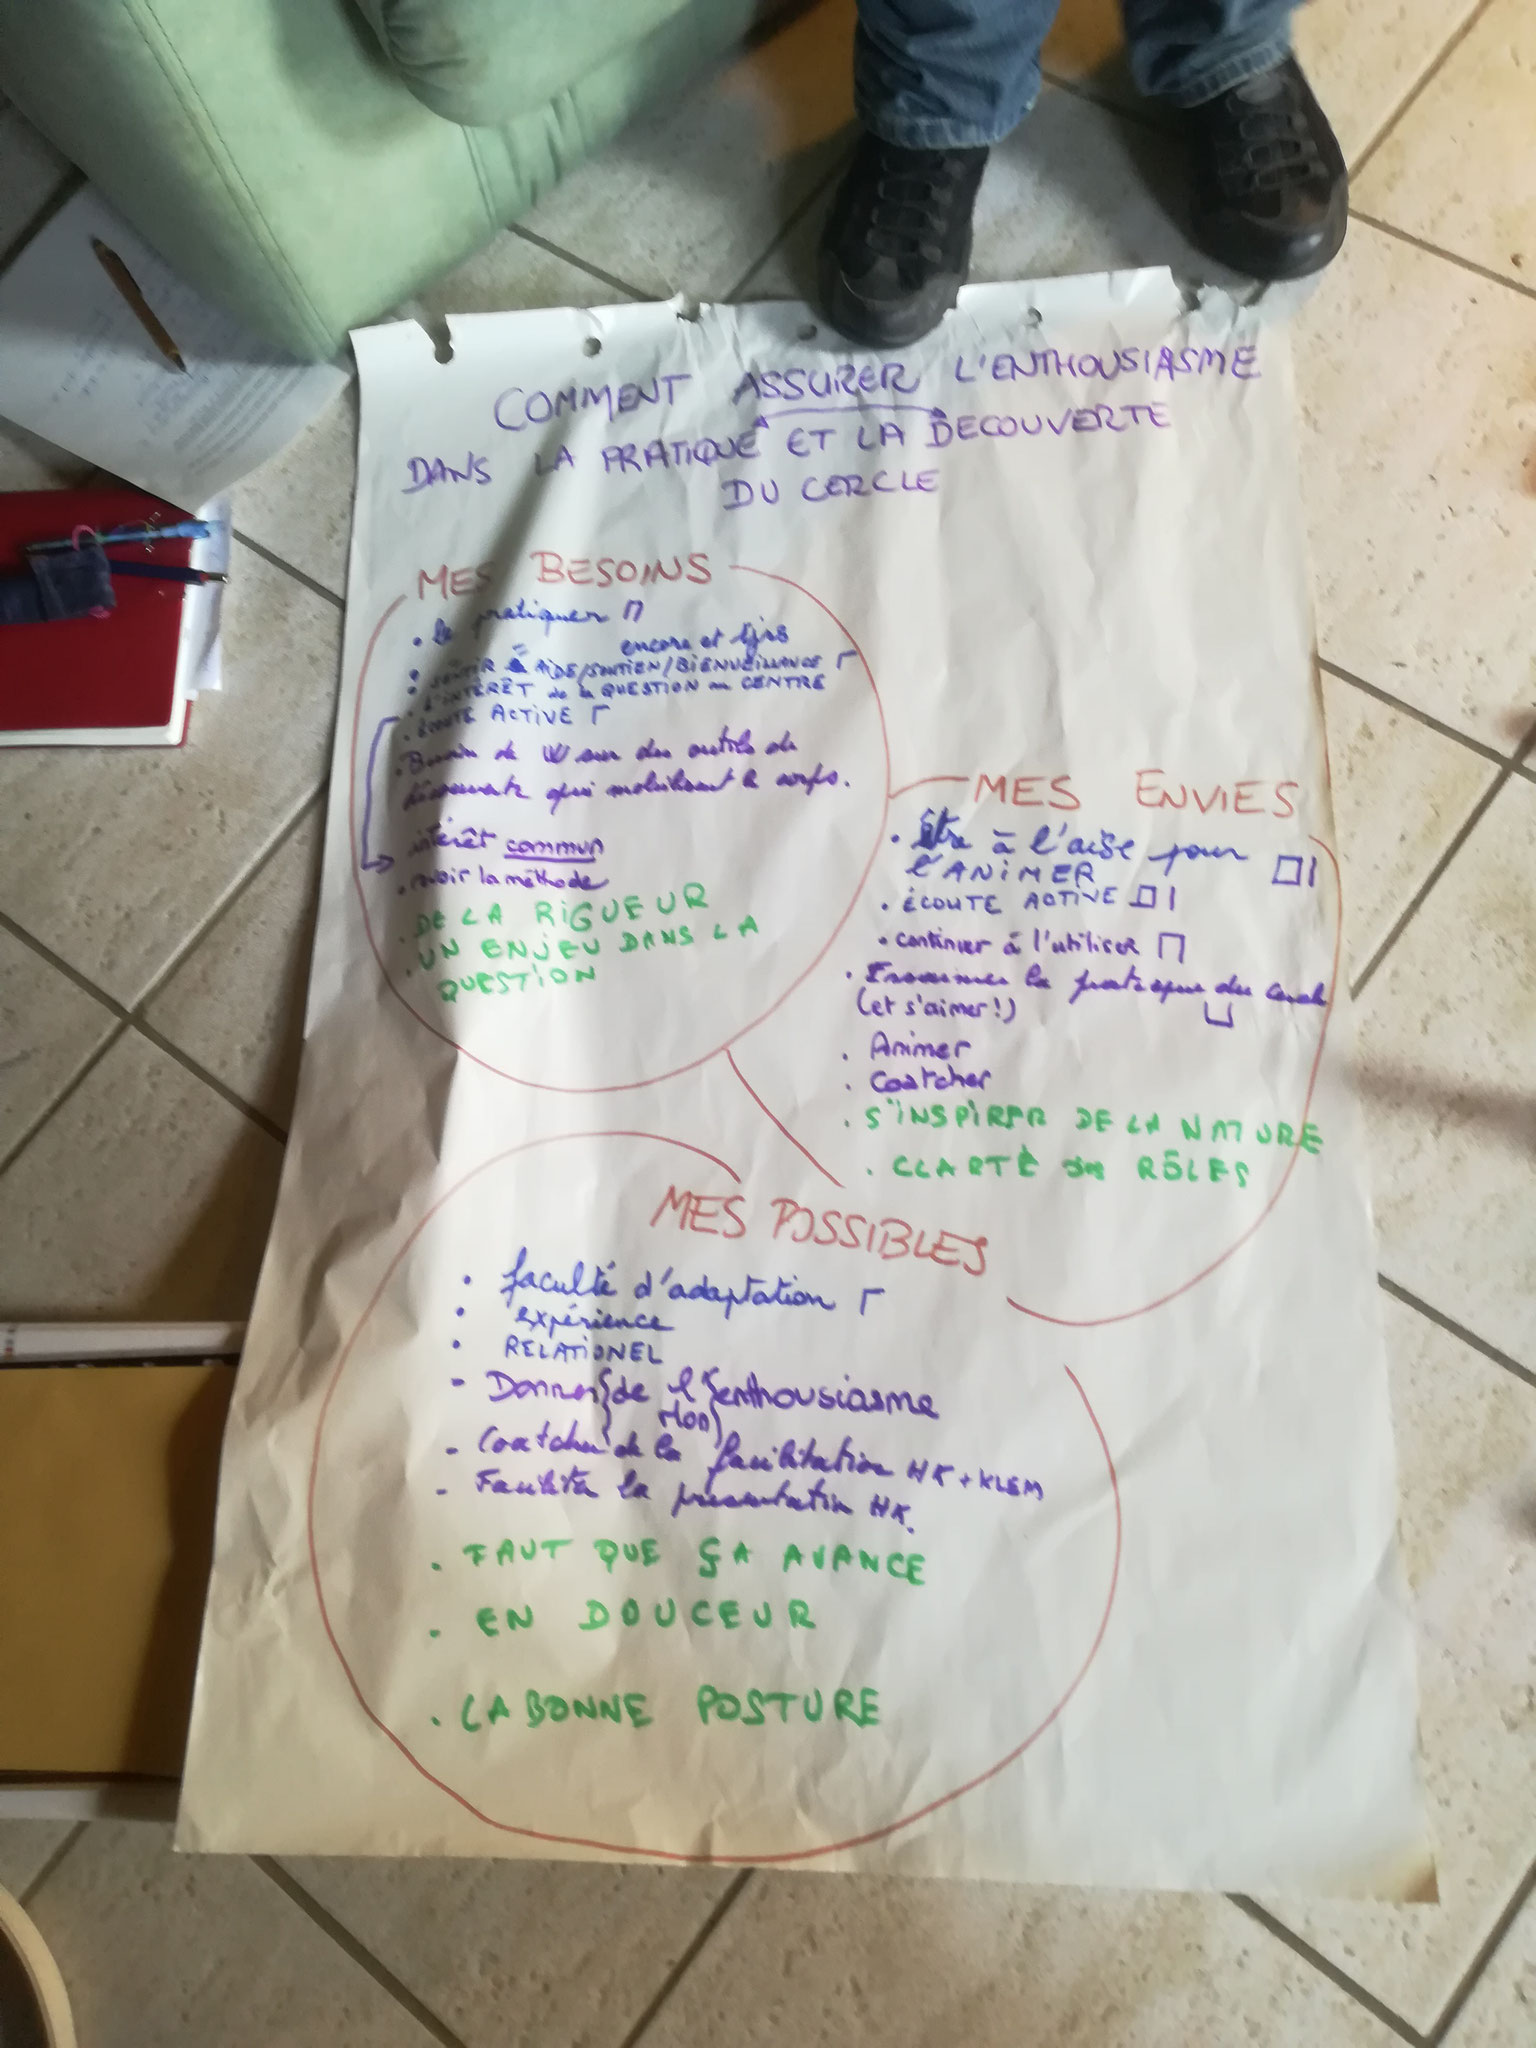 COMMENT ASSURER L'ENTHOUSIASME
DANS LA PRATIQUE ET LA DECOUVERTE
DU CERCLE
MES BESOINS
• le pratiquer
encore et tjrs
• SENTIR AIDE/SOUTIEN/BIENVEILLANCE
• L'INTÉRÊT de la QUESTION au CENTRE
• ÉCOUTE ACTIVE
• Besoin de W sur des outils de
découverte qui mobilisent le corps.
intérêt commun
• revoir la méthode
• DE LA RIGUEUR
• UN ENJEU DANS LA
QUESTION
MES ENVIES
• Être à l'aise pour
l'ANIMER
• ÉCOUTE ACTIVE
• continuer à l'utiliser
• la pratique du cercle
(et s'aimer!)
• Animer
• Coatcher
• S'INSPIRER DE LA NATURE
• CLARTÉ des RÔLES
MES POSSIBLES
• faculté d'adaptation
• expérience
• RELATIONEL
- Donner de l'enthousiasme
mon
- Coatcher de la facilitation HK + KLEM
- Faciliter la présentation HK.
• FAUT QUE ÇA AVANCE
• EN DOUCEUR
• LA BONNE POSTURE